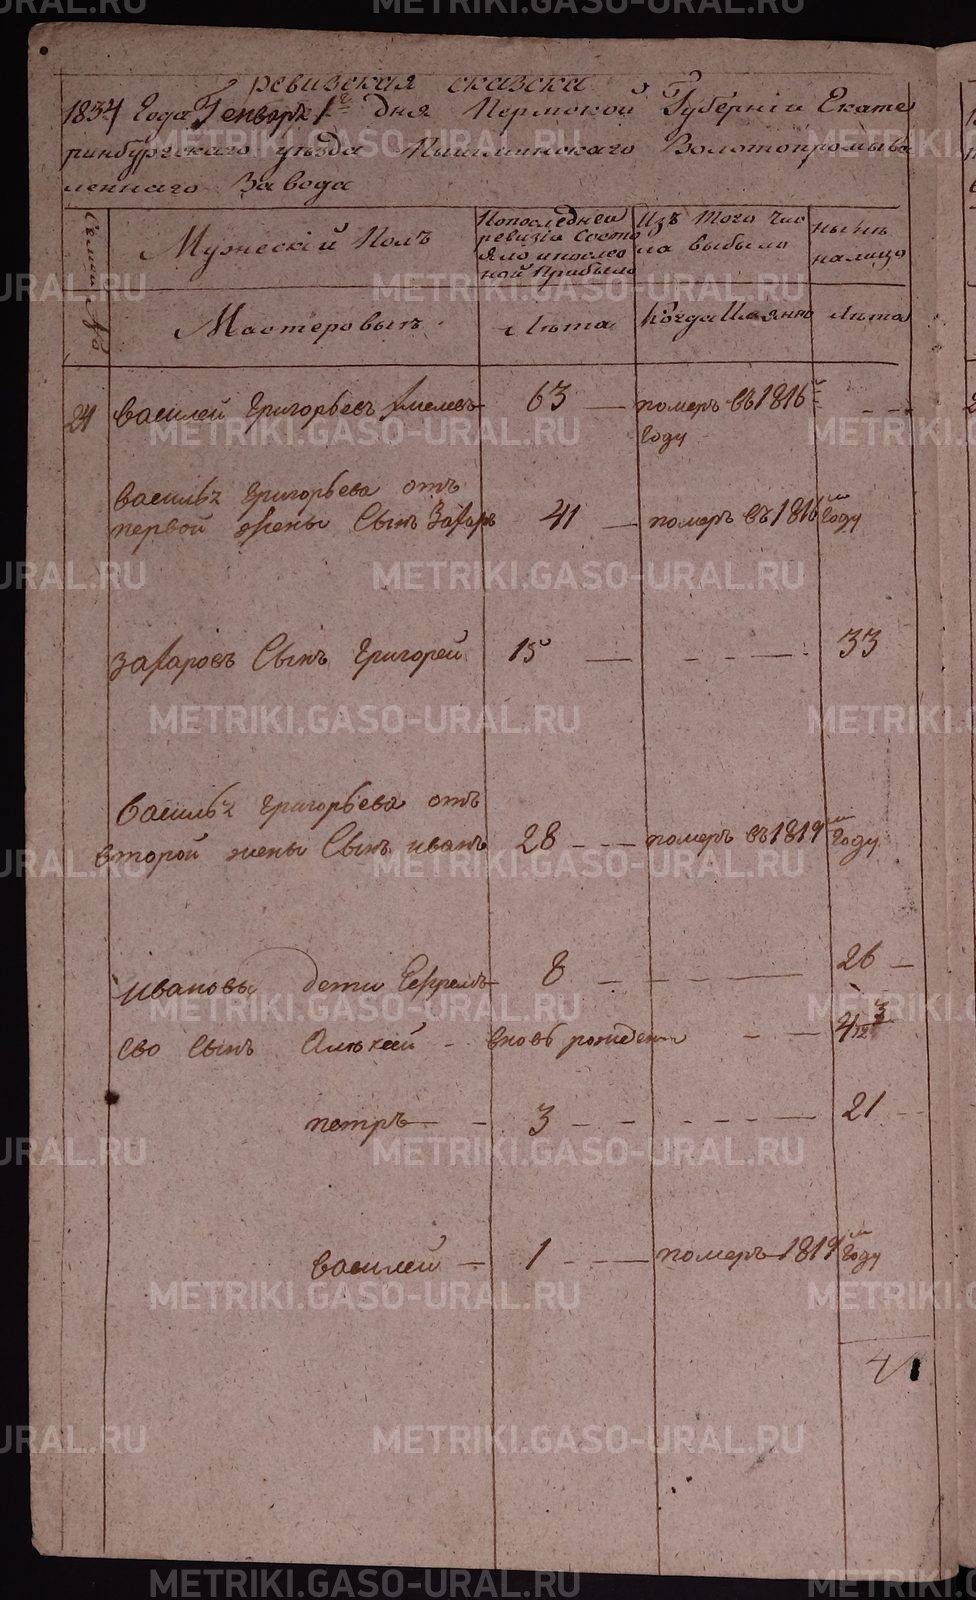 METRIKI.GASO-URAL.RU
ревизская сказска
1834 Года Генваря 1го дня Пермской Губернiи Екате
ринбургскаго уѣзда Пышминскаго Золотопромыва
леннаго Завода
Семьи №
Мужескiй Полъ
Попоследней ревизiи Состо яло ипослео ной Прибыло
Изъ Того Чис ла выбыло
нынѣ налицо
Мастеровыхъ
Лѣта
Когда Имянно
Лѣта
21 василей Григорьевъ 63 — померъ въ 1816й - - -
Году
васильz Григорьева отъ
первой жены Сынъ Захаръ 41 — померъ въ 1816м Году
Захаровъ Сынъ Григорей 15 — - - — 33
Васильz Григорьева отъ
второй жены Сынъ иванъ 28 - — померъ въ 1819м Году
ивановы дети Ефремъ 8 — 26 —
ево сынъ Алѣксей - вновь рожденъ - — 4 3/12
петръ — - 3 - - - - — 21
василей — 1 - - — померъ 1819м Году
4
METRIKI.GASO-URAL.RU